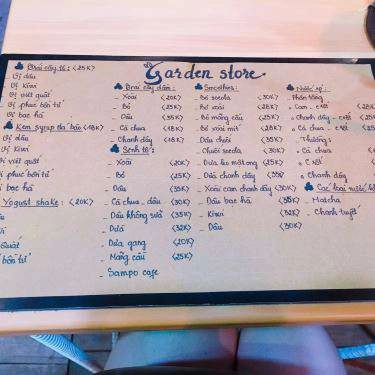 Garden store
Đrai cây tô: <25K>
Vị dâu
Vị Kiwi
Vị việt quất
Vị phúc bồn tử
Vị bạc hà
Kem syrup đá bào <18K>
Vị dâu
Vị Kiwi
việt quất
phúc bồn tử
bạc hà
Yogust shake: <20K>
quất
bồn tử
Đrai cây dầm:
_ Xoài <20K>
_ Bơ <25K>
_ Dâu <35K>
_ Cà chua <18K>
_ Chanh dây <18K>
Sinh tố:
_ Xoài <20K>
_ Bơ <25K>
_ Dâu <35K>
_ Cà chua _ dâu <30K>
_ Dâu không sữa <35K>
_ Dừa <32K>
_ Dưa gang <20K>
_ Mãng cầu <25K>
_ Sampo cafe
Smoothies:
_ Bơ socola <30K>
_ Bơ xoài <28K>
_ Bơ mãng cầu <25K>
_ Bơ xoài mít <28K>
_ Dâu chuối <35K>
_ Chuối socola <30K>
_ Dứa táo mật ong <25K>
_ Dứa chanh dây <35K>
_ Xoài cam chanh dây <30K>
_ Dâu bạc hà <35K>
_ Kiwi <32K>
_ Dâu <30K>
Nước ép:
Phân tầng
Cam _ cà rốt
Chanh dây _ cà rốt
Cà chua _ cà rốt
Thường:
Cà chua
Cà rốt
Chanh dây
Các loại nước
_ Matcha
_ Chanh tuyết